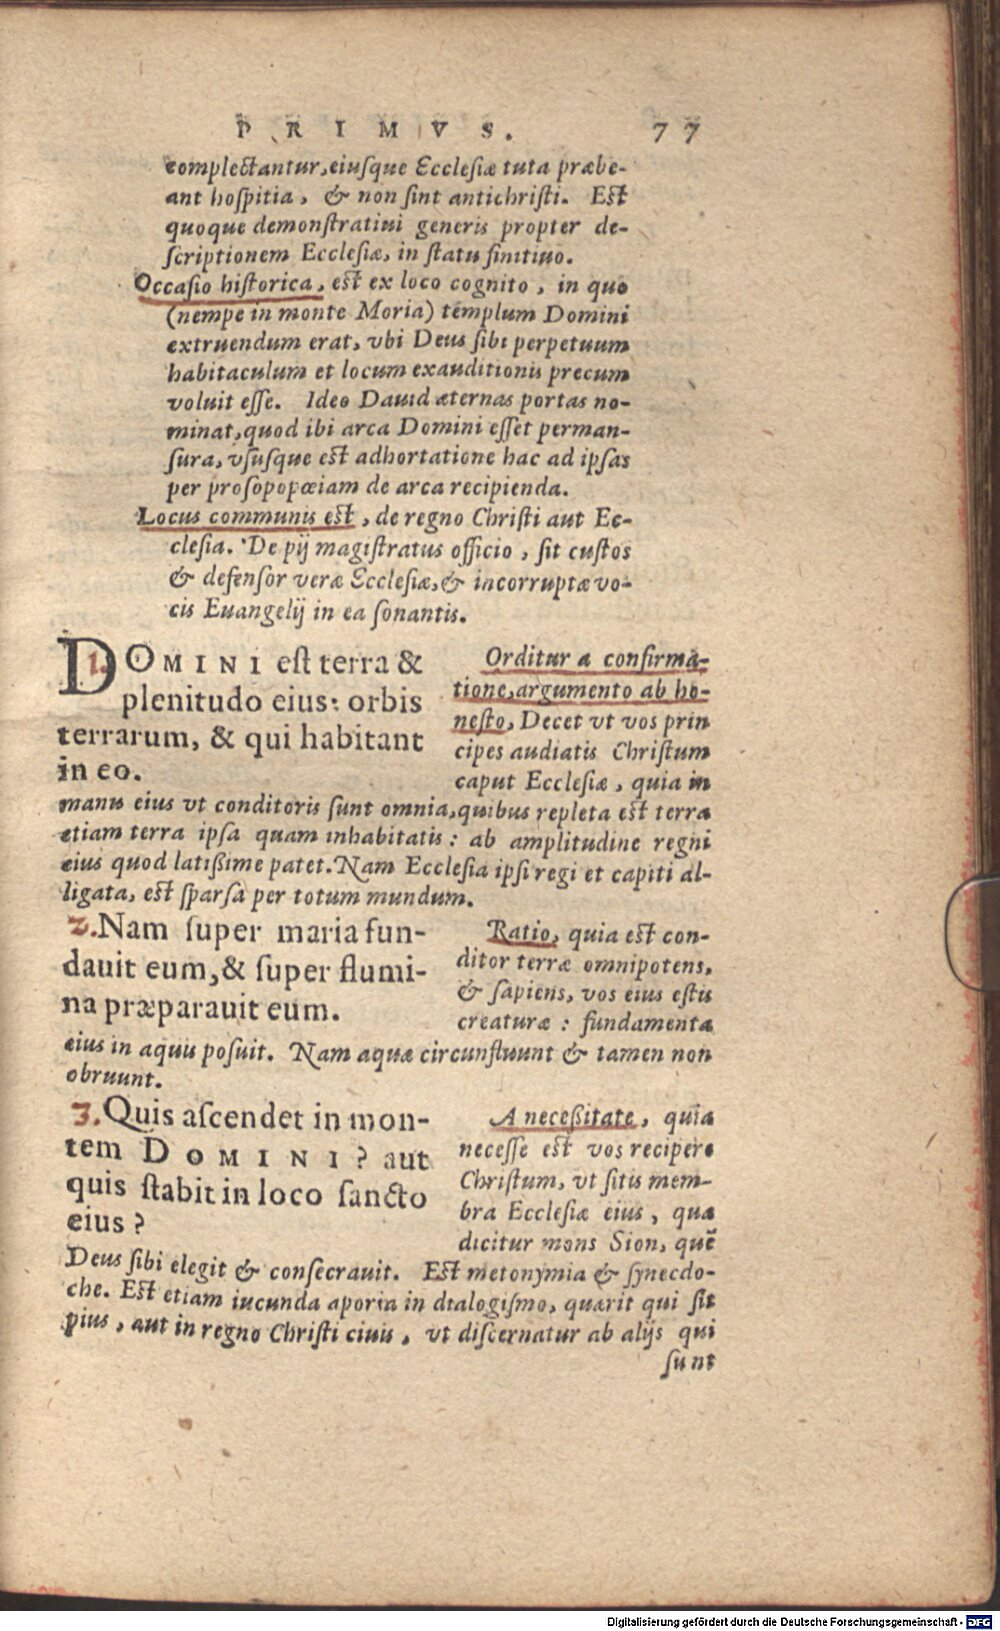 PRIMVS. 77
complectantur, eiuſque Eccleſiæ tuta præbe-
ant hoſpitia, & non ſint antichriſti. Eſt
quoque demonſtratiui generis propter de-
ſcriptionem Eccleſiæ, in ſtatu finitiuo.
Occaſio hiſtorica, eſt ex loco cognito, in quo
(nempe in monte Moria) templum Domini
extruendum erat, vbi Deus ſibi perpetuum
habitaculum et locum exauditionis precum
voluit eſſe. Ideo Dauid æternas portas no-
minat, quod ibi arca Domini eſſet perman-
ſura, vſuſque eſt adhortatione hac ad ipſas
per proſopopœiam de arca recipienda.
Locus communis eſt, de regno Chriſti aut Ec-
cleſia. De pij magiſtratus officio, ſit cuſtos
& defenſor veræ Eccleſiæ, & incorruptæ vo-
cis Euangelij in ea ſonantis.
1. DOMINI eſt terra &
plenitudo eius: orbis
terrarum, & qui habitant
in eo.
Orditur a confirma-
tione, argumento ab ho-
neſto, Decet vt vos prin
cipes audiatis Chriſtum
caput Eccleſiæ, quia in
manu eius vt conditoris ſunt omnia, quibus repleta eſt terra
etiam terra ipſa quam inhabitatis: ab amplitudine regni
eius quod latißime patet. Nam Eccleſia ipſi regi et capiti al-
ligata, eſt ſparſa per totum mundum.
2. Nam ſuper maria fun-
dauit eum, & ſuper flumi-
na præparauit eum.
Ratio, quia eſt con-
ditor terræ omnipotens,
& ſapiens, vos eius eſtis
creaturæ: fundamenta
eius in aquis poſuit. Nam aquæ circunfluunt & tamen non
obruunt.
3. Quis aſcendet in mon-
tem DOMINI? aut
quis ſtabit in loco ſancto
eius?
A neceßitate, quia
neceſſe eſt vos recipere
Chriſtum, vt ſitis mem-
bra Eccleſiæ eius, quæ
dicitur mons Sion, quē
Deus ſibi elegit & conſecrauit. Eſt metonymia & ſynecdo-
che. Eſt etiam iucunda aporia in dialogiſmo, quærit qui ſit
pius, aut in regno Chriſti ciuis, vt diſcernatur ab alijs qui
ſunt
Digitalisierung gefördert durch die Deutsche Forschungsgemeinschaft - DFG